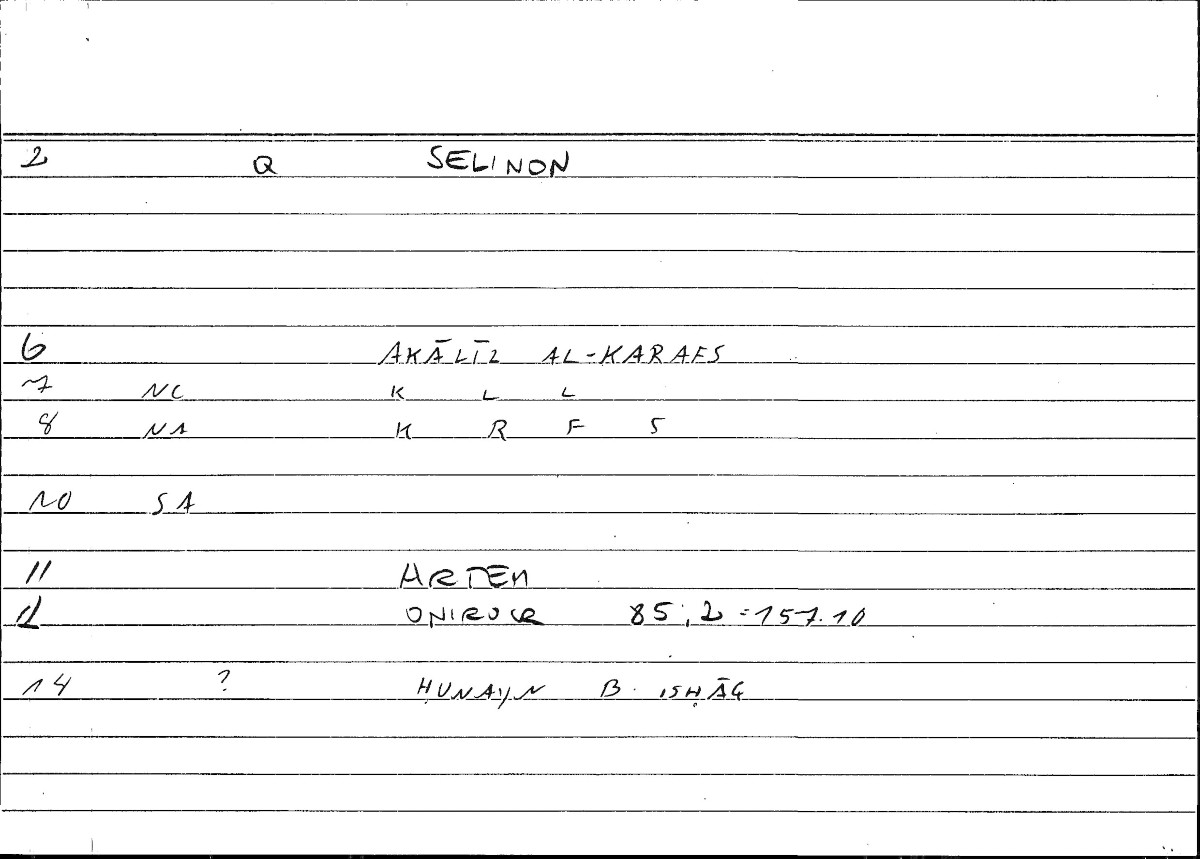 2 Q SELINON
6 AKĀLĪL AL-KARAFS
7 NC K L L
8 NA K R F S
10 SA
11 ARTEM
12 ONIROCR 85,2 = 157.10
14 ? ḤUNAYN B. ISḤĀQ